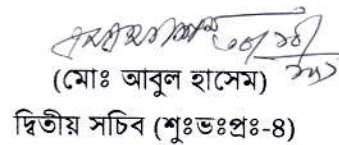 (মোঃ আবুল হাসেম)
দ্বিতীয় সচিব (শুঃভঃপ্রঃ-৪)